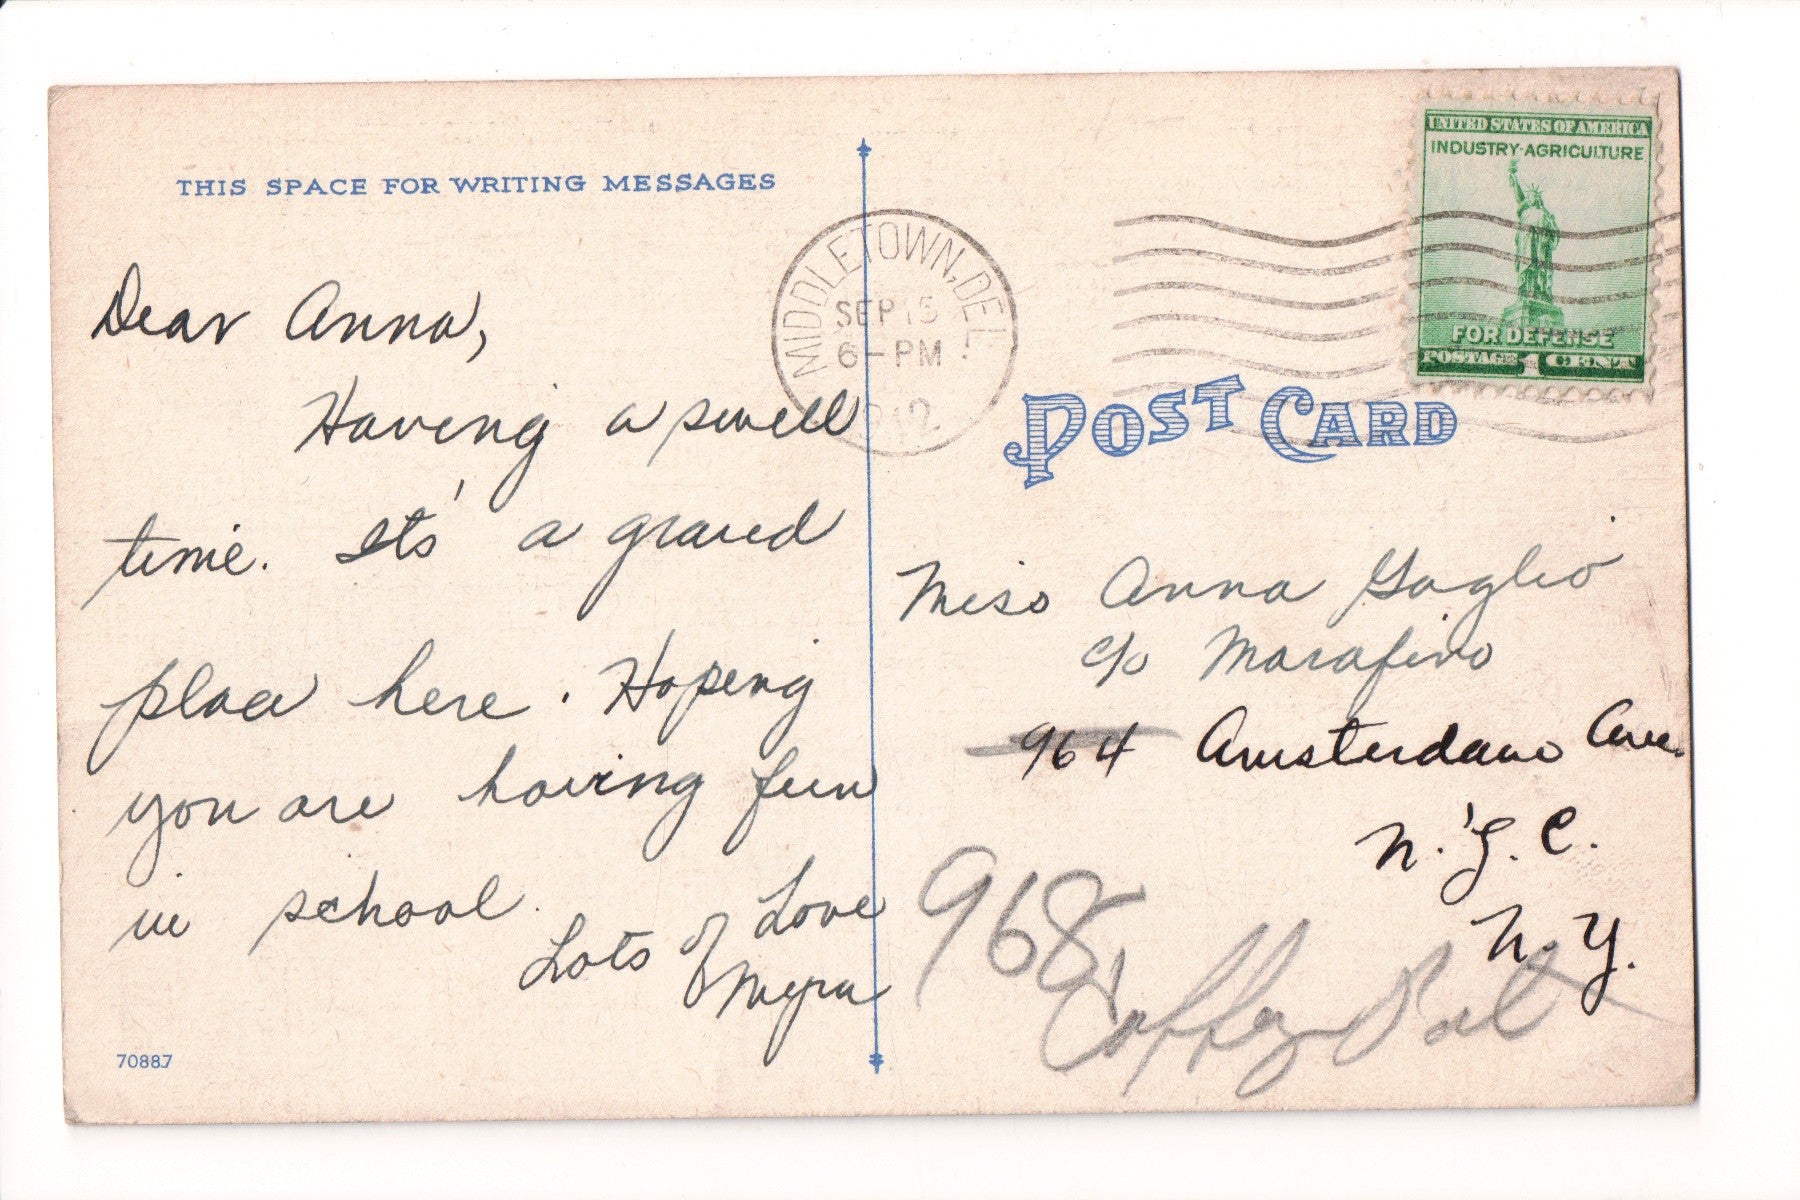 THIS SPACE FOR WRITING MESSAGES
Dear Anna,
Having a swell
time. It's a grand
place here. Hoping
you are having fun
in school.
Lots of Love
Myra
70887
MIDDLETOWN, DEL.
SEP 15
6-PM
1942
UNITED STATES OF AMERICA
INDUSTRY-AGRICULTURE
FOR DEFENSE
POSTAGE 1 CENT
POST CARD
Miss Anna Gaglio
c/o Marafino
964 Amsterdam Ave.
N.Y.C.
N.Y.
968